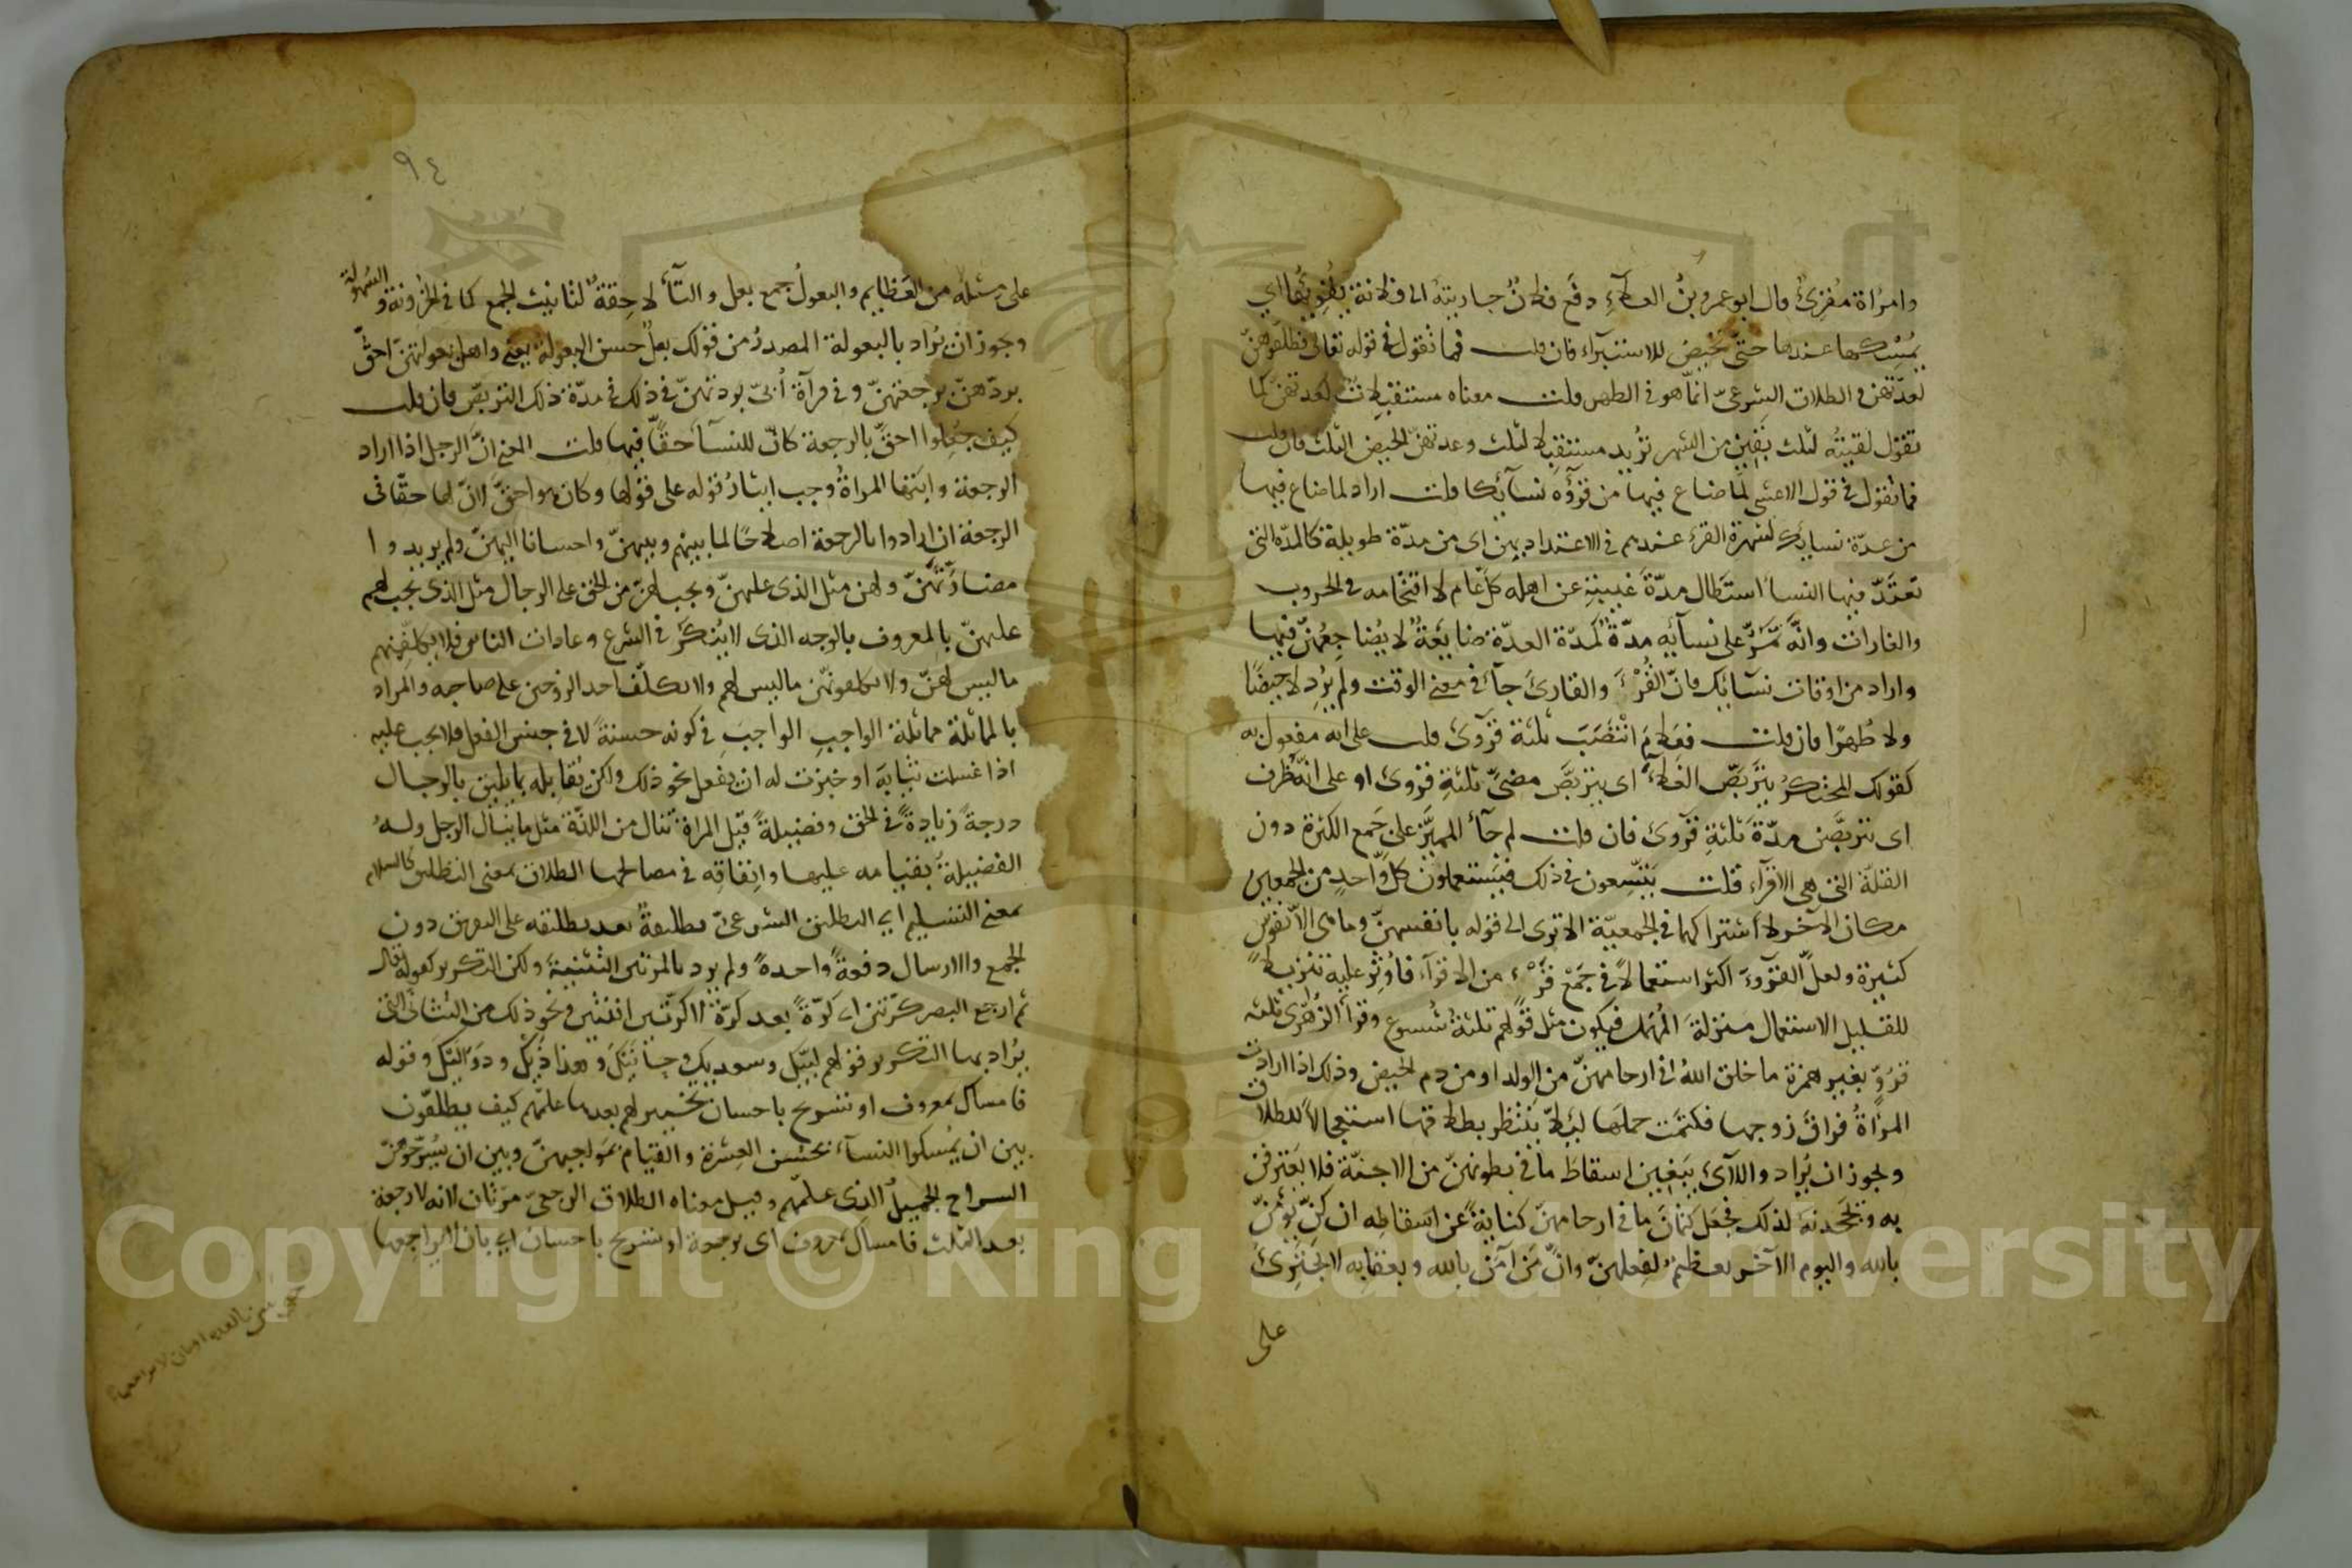 وامرأة مُقرئ قال ابو عمرو بنُ العلآءِ دفَع فلانٌ جاريتهُ الى فلانة يُقرِئُها اي
يمسكها عندها حتّى تحيض للاستبرآء فان قلت فما تقول في قوله تعالى فطلّقوهنّ
لعدّتهن والطلاق الشرعيّ انّما هو في الطهر قلت معناه مستقبلات لعدتهنّ كما
تقول لقيتُه لثلث بَقِين من الشهر تُريد مستقبلا لثلث وعدتهنّ الحيض الثلث فان قلت
فما تقول في قول الاعشى لما ضاع فيها من قروء نسآئكا قلت اراد لما ضاع فيها
من عدّة نسايك لشهرة القرء عندهم في الاعتداد بهن اى من مدّة طويلة كالمدّة التى
تعتدّ فيها النسا استطال مدّة غيبته عن اهله كلّ عام لاقتحامه في الحروب
والغارات وانّه تمرّ على نسآئه مدّةٌ كمدّة العدّة ضايعةٌ لا يُضاجعهنّ فيها
واراد من اوقات نسآئك فانّ القُرْءَ والقارئ جآء في معنى الوقت ولم يُرد لا حيضًا
ولا طُهرًا فان قلت فعلامَ انتصَبَ ثلثة قروء قلت على انه مفعول به
كقولك المحتكرُ يتربّص الغلاءَ اى يتربّصن مضيَّ ثلثةِ قروء او على انّه ظرف
اى يتربّصن مدّةَ ثلثةِ قروء فان قلت لم جآء المميَّز على جَمع الكثرة دون
القلّة التى هي الاقرآء قلت يتّسعون في ذلك فيستعملون كلّ واحدٍ من الجمعين
مكان الآخر لاشتراكهما في الجمعيّة الا ترى الى قوله بانفسهنّ وما هى الّا نفوسٌ
كثيرة ولعلّ القروءَ اكثر استعمالًا في جَمْع قُرْءٍ من الاقرآء فأوثر عليه تنزيلًا
للقليل الاستعمال منزلةَ المُهمَل فيكون مثل قولهم ثلثةُ شُسوع وقرأ الزُهْرى ثلثه
قروّ بغير همزة ما خلق اللهُ فى ارحامهنّ من الولد او من دم الحيض وذلك اذا ارادت
المرأةُ فراقَ زوجها فكتمَت حملَها لئلّا ينتظر بطلاقها استعجالًا للطلاق
ويجوز ان يُراد واللآئى يَبغين اسقاطَ ما في بطونهنّ من الاجنّة فلا يعترفن
به ويجحدنه لذلك فجعَل كتمانَ ما في ارحامهنّ كنايةً عن اسقاطِه ان كنّ يؤمنّ
بالله واليوم الآخر تعظيمٌ لفعلهنّ وانّ مَن آمَن بالله وبعقابه لا يجترئ
على
٩٤
على مثله من العظايم والبعولُ جمع بعل والتآء لاحِقةٌ لتانيث الجمع كما في الحزونة و السُهولة
ويجوز ان يُراد بالبعولة المصدرُ من قولك بعلٌ حسن البعولة يعنى واهل بعولتهنّ احقّ
بردّهنّ برجعتهنّ وفى قرآة اُبىّ بردتهنّ فى ذلك فى مدّة ذلك التربّص فان قلت
كيف جُعِلوا احقّ بالرجعة كانّ للنسآء حقًّا فيها قلت المعنى انّ الرجل اذا اراد
الرجعة وابَتها المراةُ وجب ايثارُ قوله على قولها وكان هو احقّ لا انّ لها حقّا فى
الرجعة ان ارادوا بالرجعة اصلاحًا لما بينهم وبينهنّ واحسانا اليهنّ ولم يريدوا
مضارّتهنّ ولهن مثل الذى عليهنّ ويجب لهنّ من الحق على الرجال مثل الذى يجب لهم
عليهنّ بالمعروف بالوجه الذى لا يُنكَر فى الشرع وعادات الناس فلا يكلّفنهم
ما ليس لهنّ ولا يكلّفونهنّ ما ليس لهم ولا يكلّف احد الزوجين على صاحبه والمراد
بالمماثلة مماثلة الواجبِ الواجبَ فى كونه حسنةً لا فى جنس الفعل فلا يجب عليه
اذا غسلت ثيابَه او خبزت له ان يفعل نحو ذلك ولكن يقابله بما يليق بالرجال
درجةً زيادةً فى الحق وفضيلةً قيل المراة تنال من اللذّة مثل ما ينال الرجل وله
الفضيلةُ بقيامه عليها وانفاقِه فى مصالحها الطلاق بمعنى التطليق كالسلام
بمعنى التسليم اى التطليق الشرعىّ تطليقةٌ بعد تطليقه على التفريق دون
الجمع والارسال دفعةً واحدةً ولم يرد بالمرتين التثنيةَ ولكن التكرير كقوله تعالى
ثم ارجع البصر كرّتين اى كرّةً بعد كرّة لا كرّتين اثنتين ونحو ذلك من التثانى التى
يُراد بها التكرير قولهم لبّيك وسعديك وحنانيك وهذاذيك ودوَاليك وقوله
فامساك بمعروف او تسريح باحسان تخيير لهم بعد ما علّمهم كيف يطلّقون
بين ان يُمسكوا النسآء بحُسن العِشرة والقيام بمَواجبهنّ وبين ان يُسرّحوهنّ
السراح الجميلَ الذى علّمهم وقيل معناه الطلاق الرجعىّ مرّتان لانه لا رجعة
بعد الثلث فامساك بمعروف اى برجعة او تسريح باحسان اى بان لا يراجعها